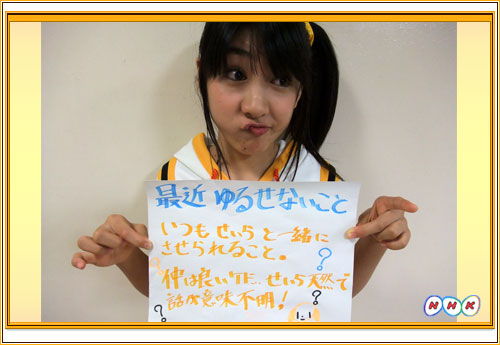 最近 ゆるせないこと
いつもせいらと一緒に
させられること。
仲は良いケド、せいら天然で
話が意味不明!
?
?
?
NHK